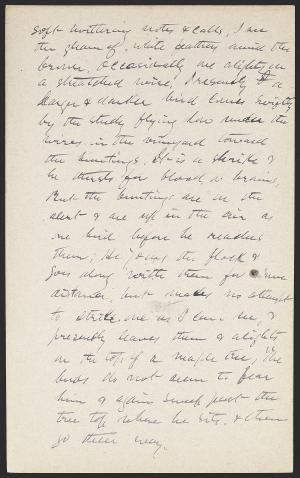 soft twittering notes & calls, I see
the gleam of white feathers amid the
brown. Occasionally one alights on
a stretched wire. Presently a
larger & darker bird comes swiftly
by the study flying low under the
wires in the vineyard toward
the buntings. It is a shrike &
he thirsts for blood & brains,
But the buntings are on the
alert & are up in the air as
one bird before he reaches
them; He joins the flock &
goes along with them for some
distance, but makes no attempt
to strike one as I can see, &
presently leaves them & alights
on the top of a maple tree, The
birds do not seem to fear
him & again sweep past the
tree top where he sits, & then
go their way.